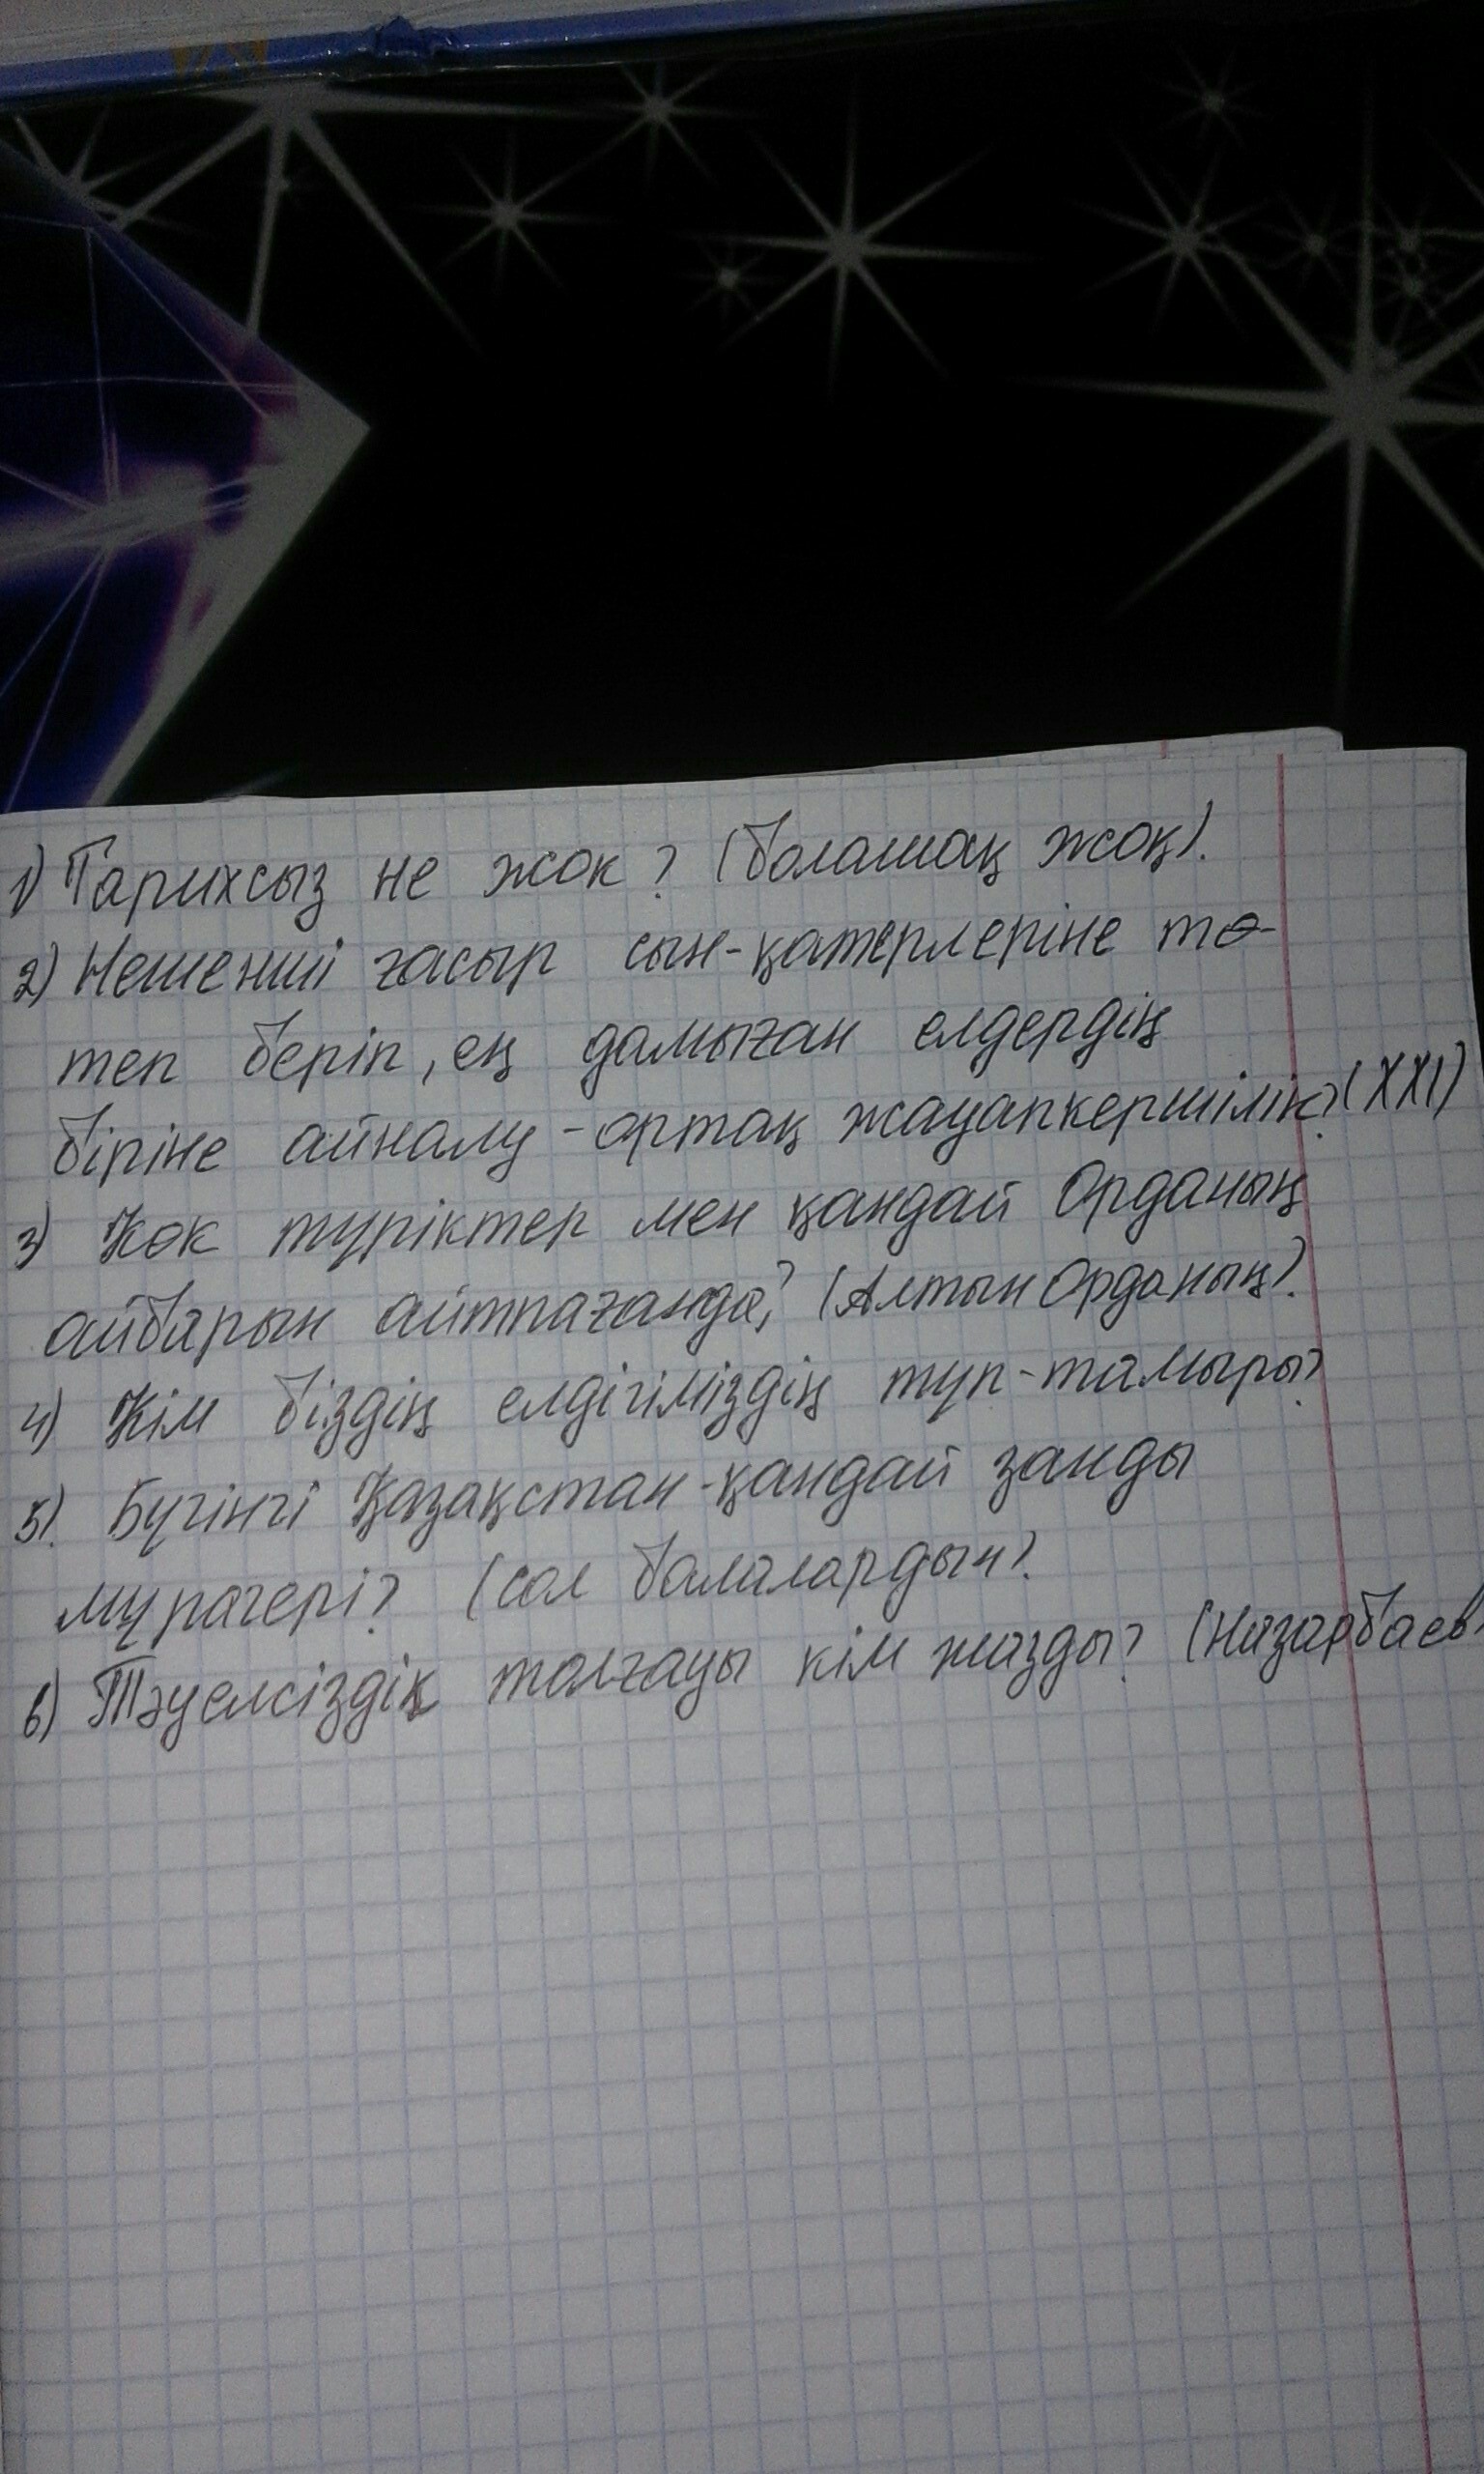 1) Тарихсыз не жок? (болашақ жоқ).
2) Нешенші ғасыр сын-қатерлеріне тө-
теп беріп, ең дамыған елдердің
біріне айналу - ортақ жауапкершілік? (XXI)
3) Көк түріктер мен қандай Орданың
айбарын айтпағанда? (Алтын Орданың).
4) Кім біздің елдігіміздің түп-тамыры?
5). Бүгінгі Қазақстан - қандай заңды
мұрагері? (сол балалардың).
6) Тәуелсіздік толғауы кім жазды? (Назарбаев)